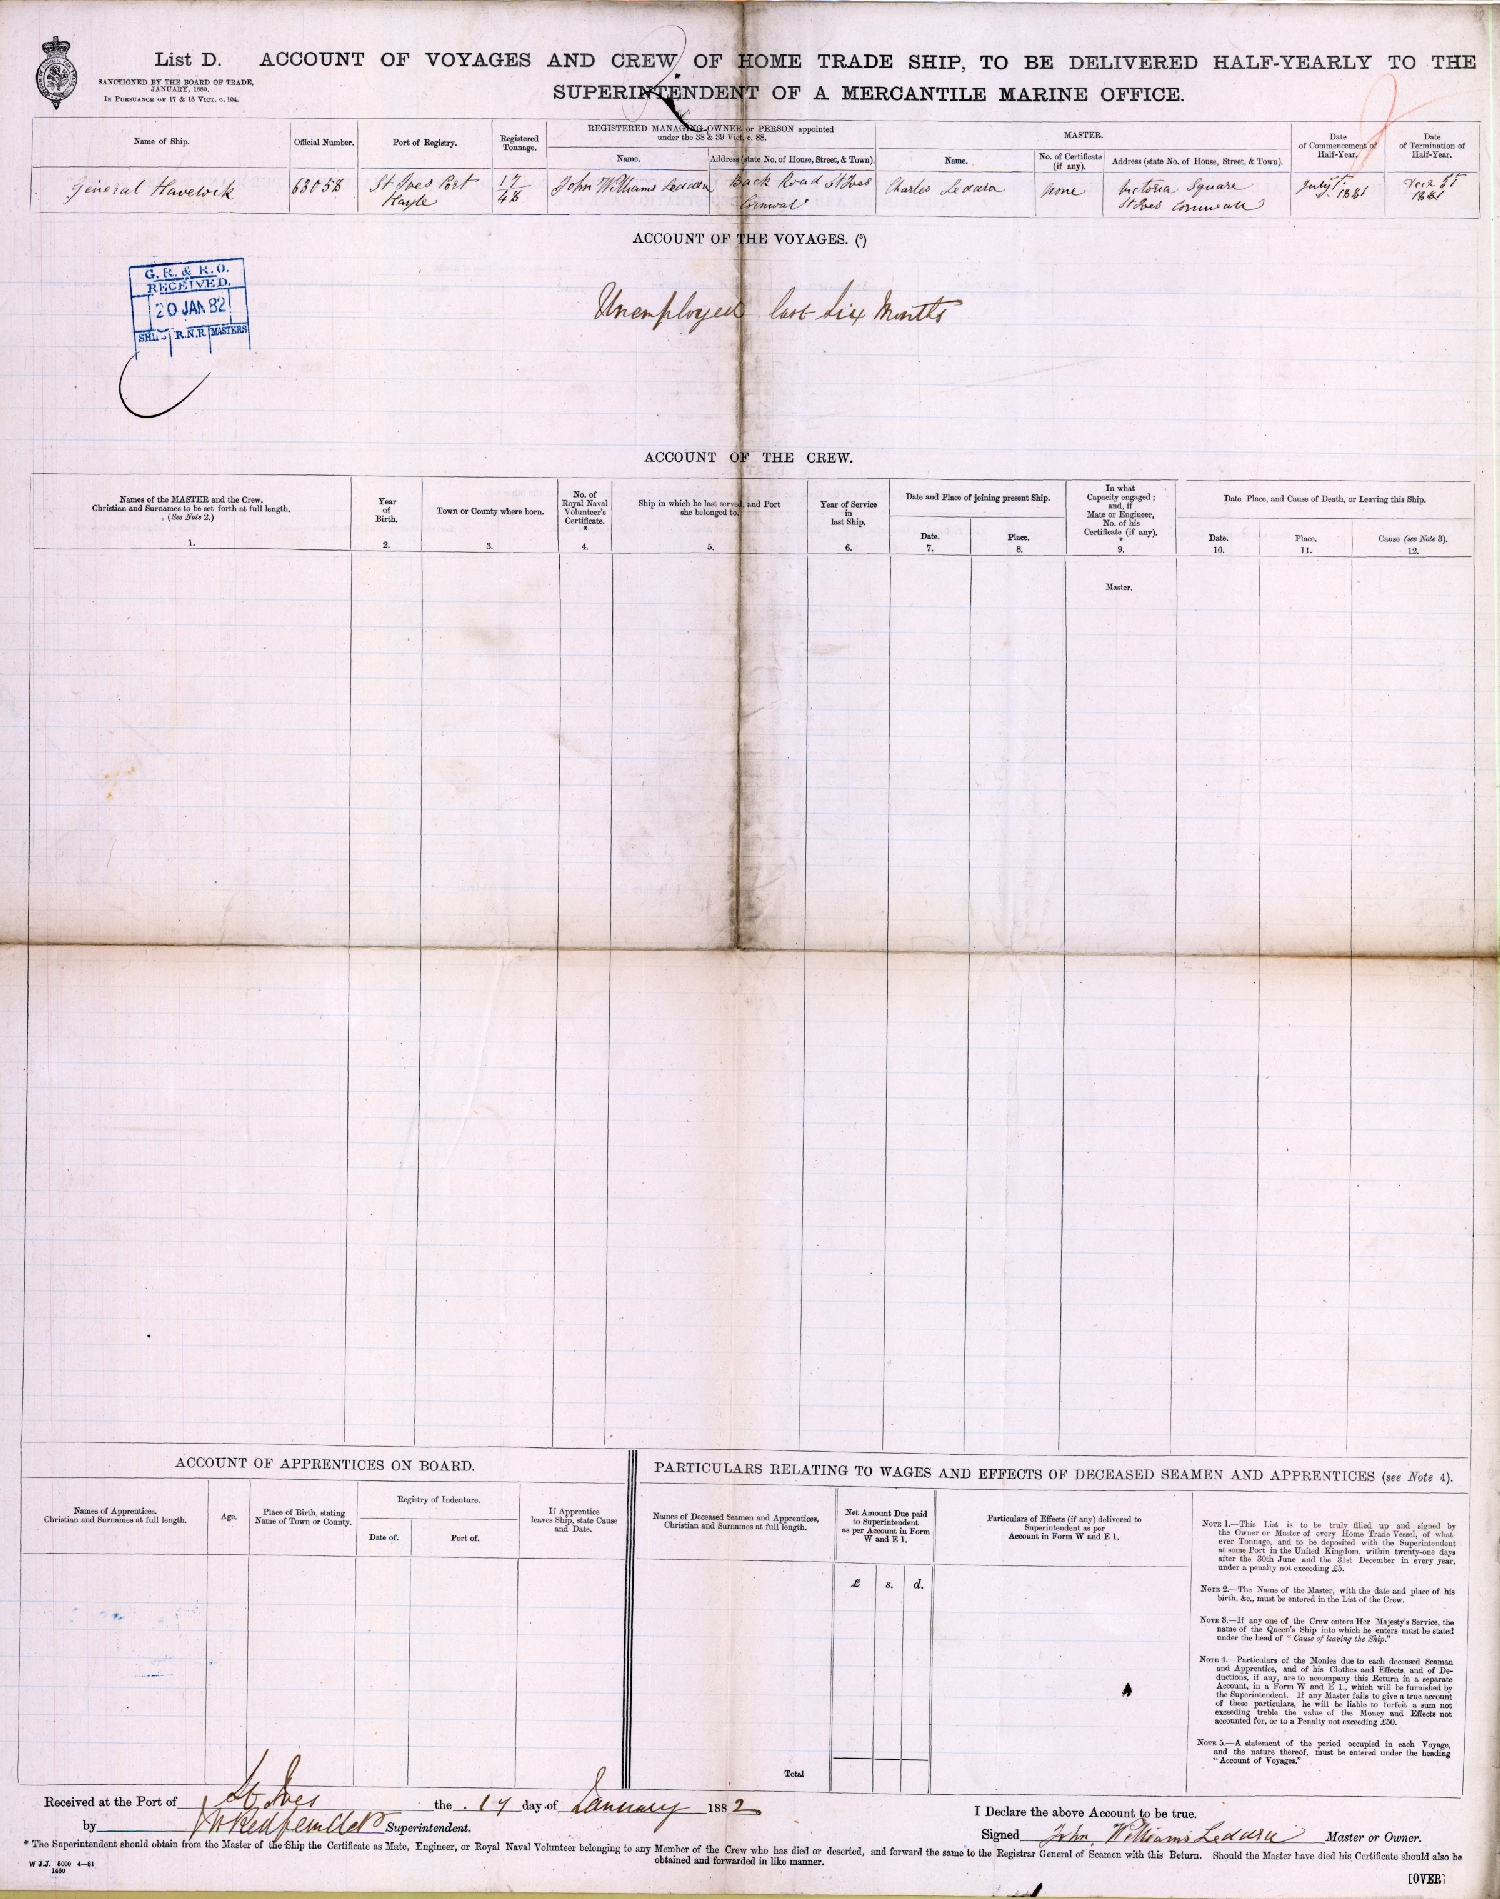 List D. ACCOUNT OF VOYAGES AND CREW OF HOME TRADE SHIP, TO BE DELIVERED HALF-YEARLY TO THE
SUPERINTENDENT OF A MERCANTILE MARINE OFFICE.
SANCTIONED BY THE BOARD OF TRADE,
JANUARY, 1880.
IN PURSUANCE OF 17 & 18 VICT. c. 104.
Name of Ship.
Official Number.
Port of Registry.
Registered
Tonnage.
REGISTERED MANAGING OWNER or PERSON appointed
under the 38 & 39 Vict. c. 88.
Name.
Address (state No. of House, Street, & Town).
MASTER.
Name.
No. of Certificate
(if any).
Address (state No. of House, Street, & Town).
Date
of Commencement of
Half-Year.
Date
of Termination of
Half-Year.
General Havelock
St Ives Port
Hayle
17
John Williams
Back Road St Ives
Cornwal
Charles
None
Victoria Square
St Ives Cornwall
July 1st
1881
1881
ACCOUNT OF THE VOYAGES. (5)
G. R. & R. O.
RECEIVED.
20 JAN 82
SHIPS R.N.R. MASTERS
Unemployed last six Months
ACCOUNT OF THE CREW.
Names of the MASTER and the Crew.
Christian and Surnames to be set forth at full length.
(See Note 2.)
1.
Year
of
Birth.
2.
Town or County where born.
3.
No. of
Royal Naval
Volunteer's
Certificate.
*
4.
Ship in which he last served, and Port
she belonged to.
5.
Year of Service
in
last Ship.
6.
Date and Place of joining present Ship.
Date.
7.
Place.
8.
In what
Capacity engaged;
and, if
Mate or Engineer,
No. of his
Certificate (if any).
*
9.
Date, Place, and Cause of Death, or Leaving this Ship.
Date.
10.
Place.
11.
Cause (see Note 3).
12.
Master.
ACCOUNT OF APPRENTICES ON BOARD.
Names of Apprentices.
Christian and Surnames at full length.
Age.
Place of Birth, stating
Name of Town or County.
Registry of Indenture.
Date of.
Port of.
If Apprentice
leaves Ship, state Cause
and Date.
PARTICULARS RELATING TO WAGES AND EFFECTS OF DECEASED SEAMEN AND APPRENTICES (see Note 4).
Names of Deceased Seamen and Apprentices,
Christian and Surnames at full length.
Net Amount Due paid
to Superintendent
as per Account in Form
W and E 1.
£ s. d.
Total
Particulars of Effects (if any) delivered to
Superintendent as per
Account in Form W and E 1.
NOTE 1.—This List is to be truly filled up and signed by
the Owner or Master of every Home Trade Vessel, of what-
ever Tonnage, and to be deposited with the Superintendent
at some Port in the United Kingdom, within twenty-one days
after the 30th June and the 31st December in every year,
under a penalty not exceeding £5.
NOTE 2.—The Name of the Master, with the date and place of his
birth, &c., must be entered in the List of the Crew.
NOTE 3.—If any one of the Crew enters Her Majesty's Service, the
name of the Queen's Ship into which he enters must be stated
under the head of "Cause of leaving the Ship."
NOTE 4.—Particulars of the Monies due to each deceased Seaman
and Apprentice, and of his Clothes and Effects, and of De-
ductions, if any, are to accompany this Return in a separate
Account, in a Form W and E 1., which will be furnished by
the Superintendent. If any Master fails to give a true account
of these particulars, he will be liable to forfeit a sum not
exceeding treble the value of the Money and Effects not
accounted for, or to a Penalty not exceeding £50.
NOTE 5.—A statement of the period occupied in each Voyage,
and the nature thereof, must be entered under the heading
"Account of Voyages."
Received at the Port of St Ives the 17 day of January 1882
by Superintendent.
I Declare the above Account to be true.
Signed John Williams Master or Owner.
* The Superintendent should obtain from the Master of the Ship the Certificate as Mate, Engineer, or Royal Naval Volunteer belonging to any Member of the Crew who has died or deserted, and forward the same to the Registrar General of Seamen with this Return. Should the Master have died his Certificate should also be
obtained and forwarded in like manner.
W J.J. 5000 4—81
1450
[OVER]